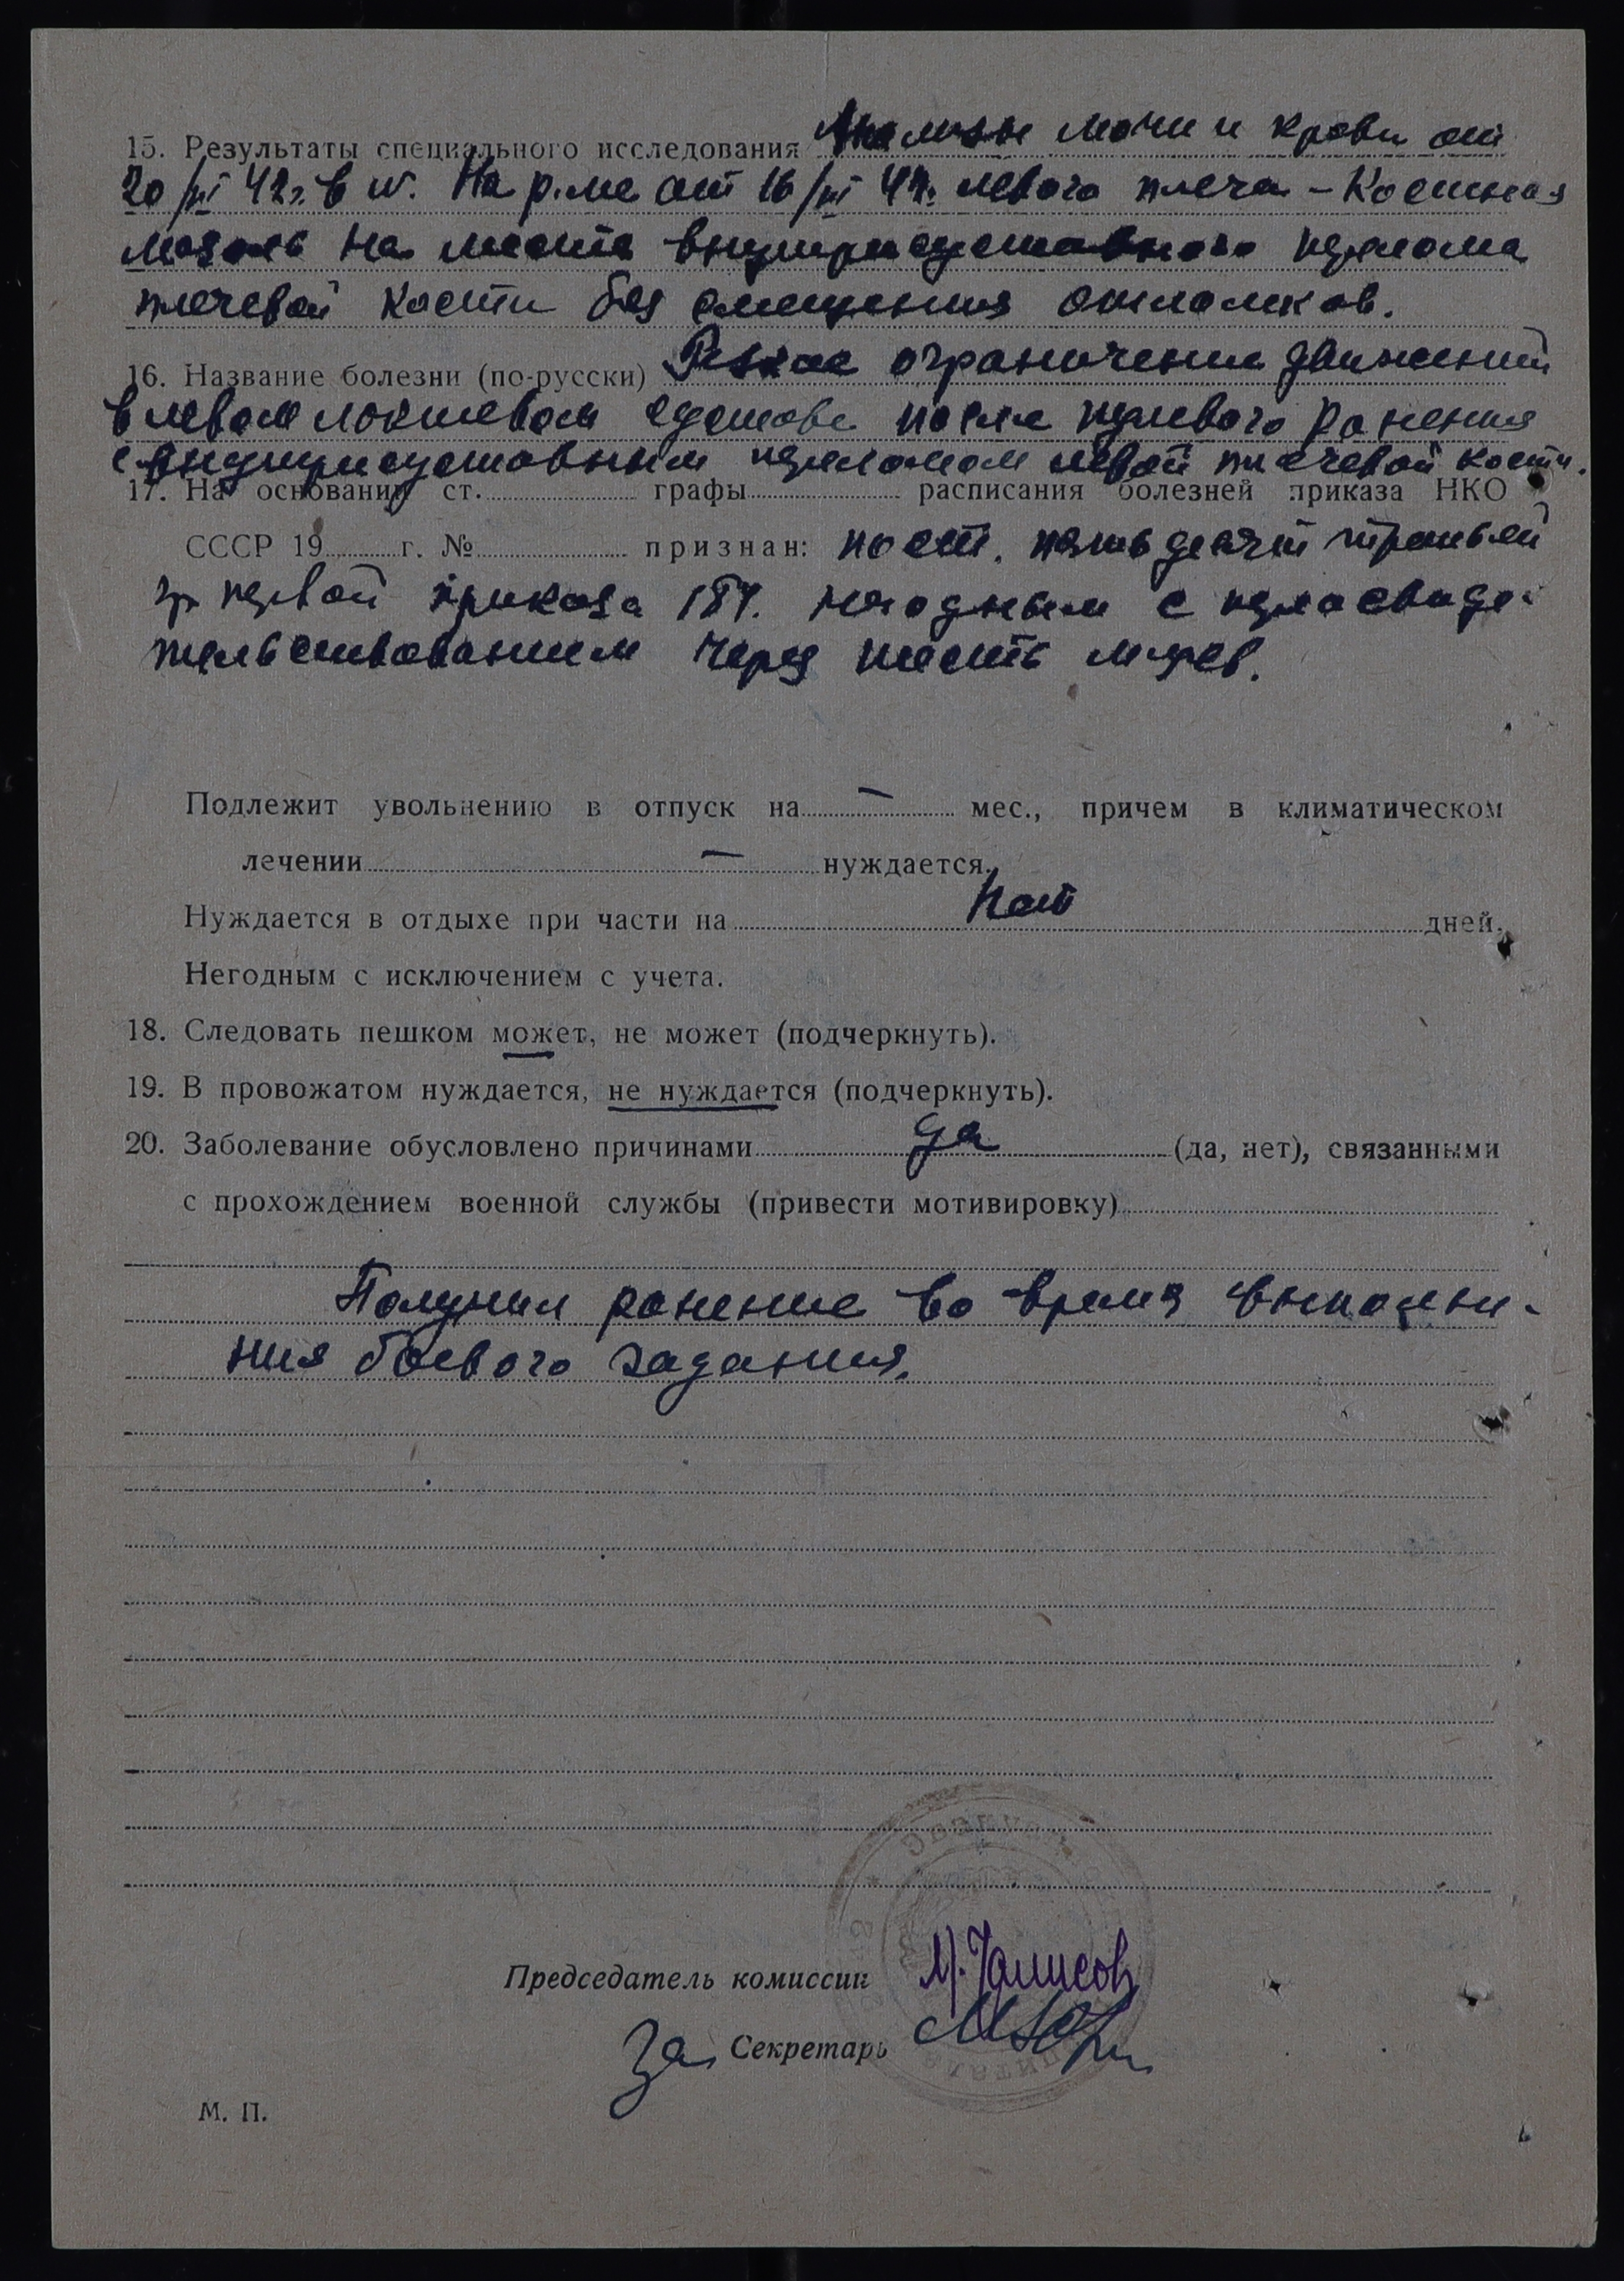 15. Результаты специального исследования Анализы мочи и крови от
20/III 42г. в N. На р-ме от 16/III 42г. левого плеча – Костная
мозоль на месте внутрисуставного перелома
плечевой кости без смещения отломков.
16. Название болезни (по-русски) Резкое ограничение движений
в левом локтевом суставе после пулевого ранения
с внутрисуставным переломом левой плечевой кости.
17. На основании ст. графы расписания болезней приказа НКО
СССР 19 г. № признан: по ст. пятьдесят третьей
гр первой приказа 184. негодным с переосвиде-
тельствованием через шесть м-цев.
Подлежит увольнению в отпуск на — мес., причем в климатическом
лечении — нуждается.
Нуждается в отдыхе при части на Нет дней.
Негодным с исключением с учета.
18. Следовать пешком может, не может (подчеркнуть).
19. В провожатом нуждается, не нуждается (подчеркнуть).
20. Заболевание обусловлено причинами да (да, нет), связанными
с прохождением военной службы (привести мотивировку)
Получил ранение во время выполне-
ния боевого задания.
Председатель комиссии
За Секретарь
М. П.